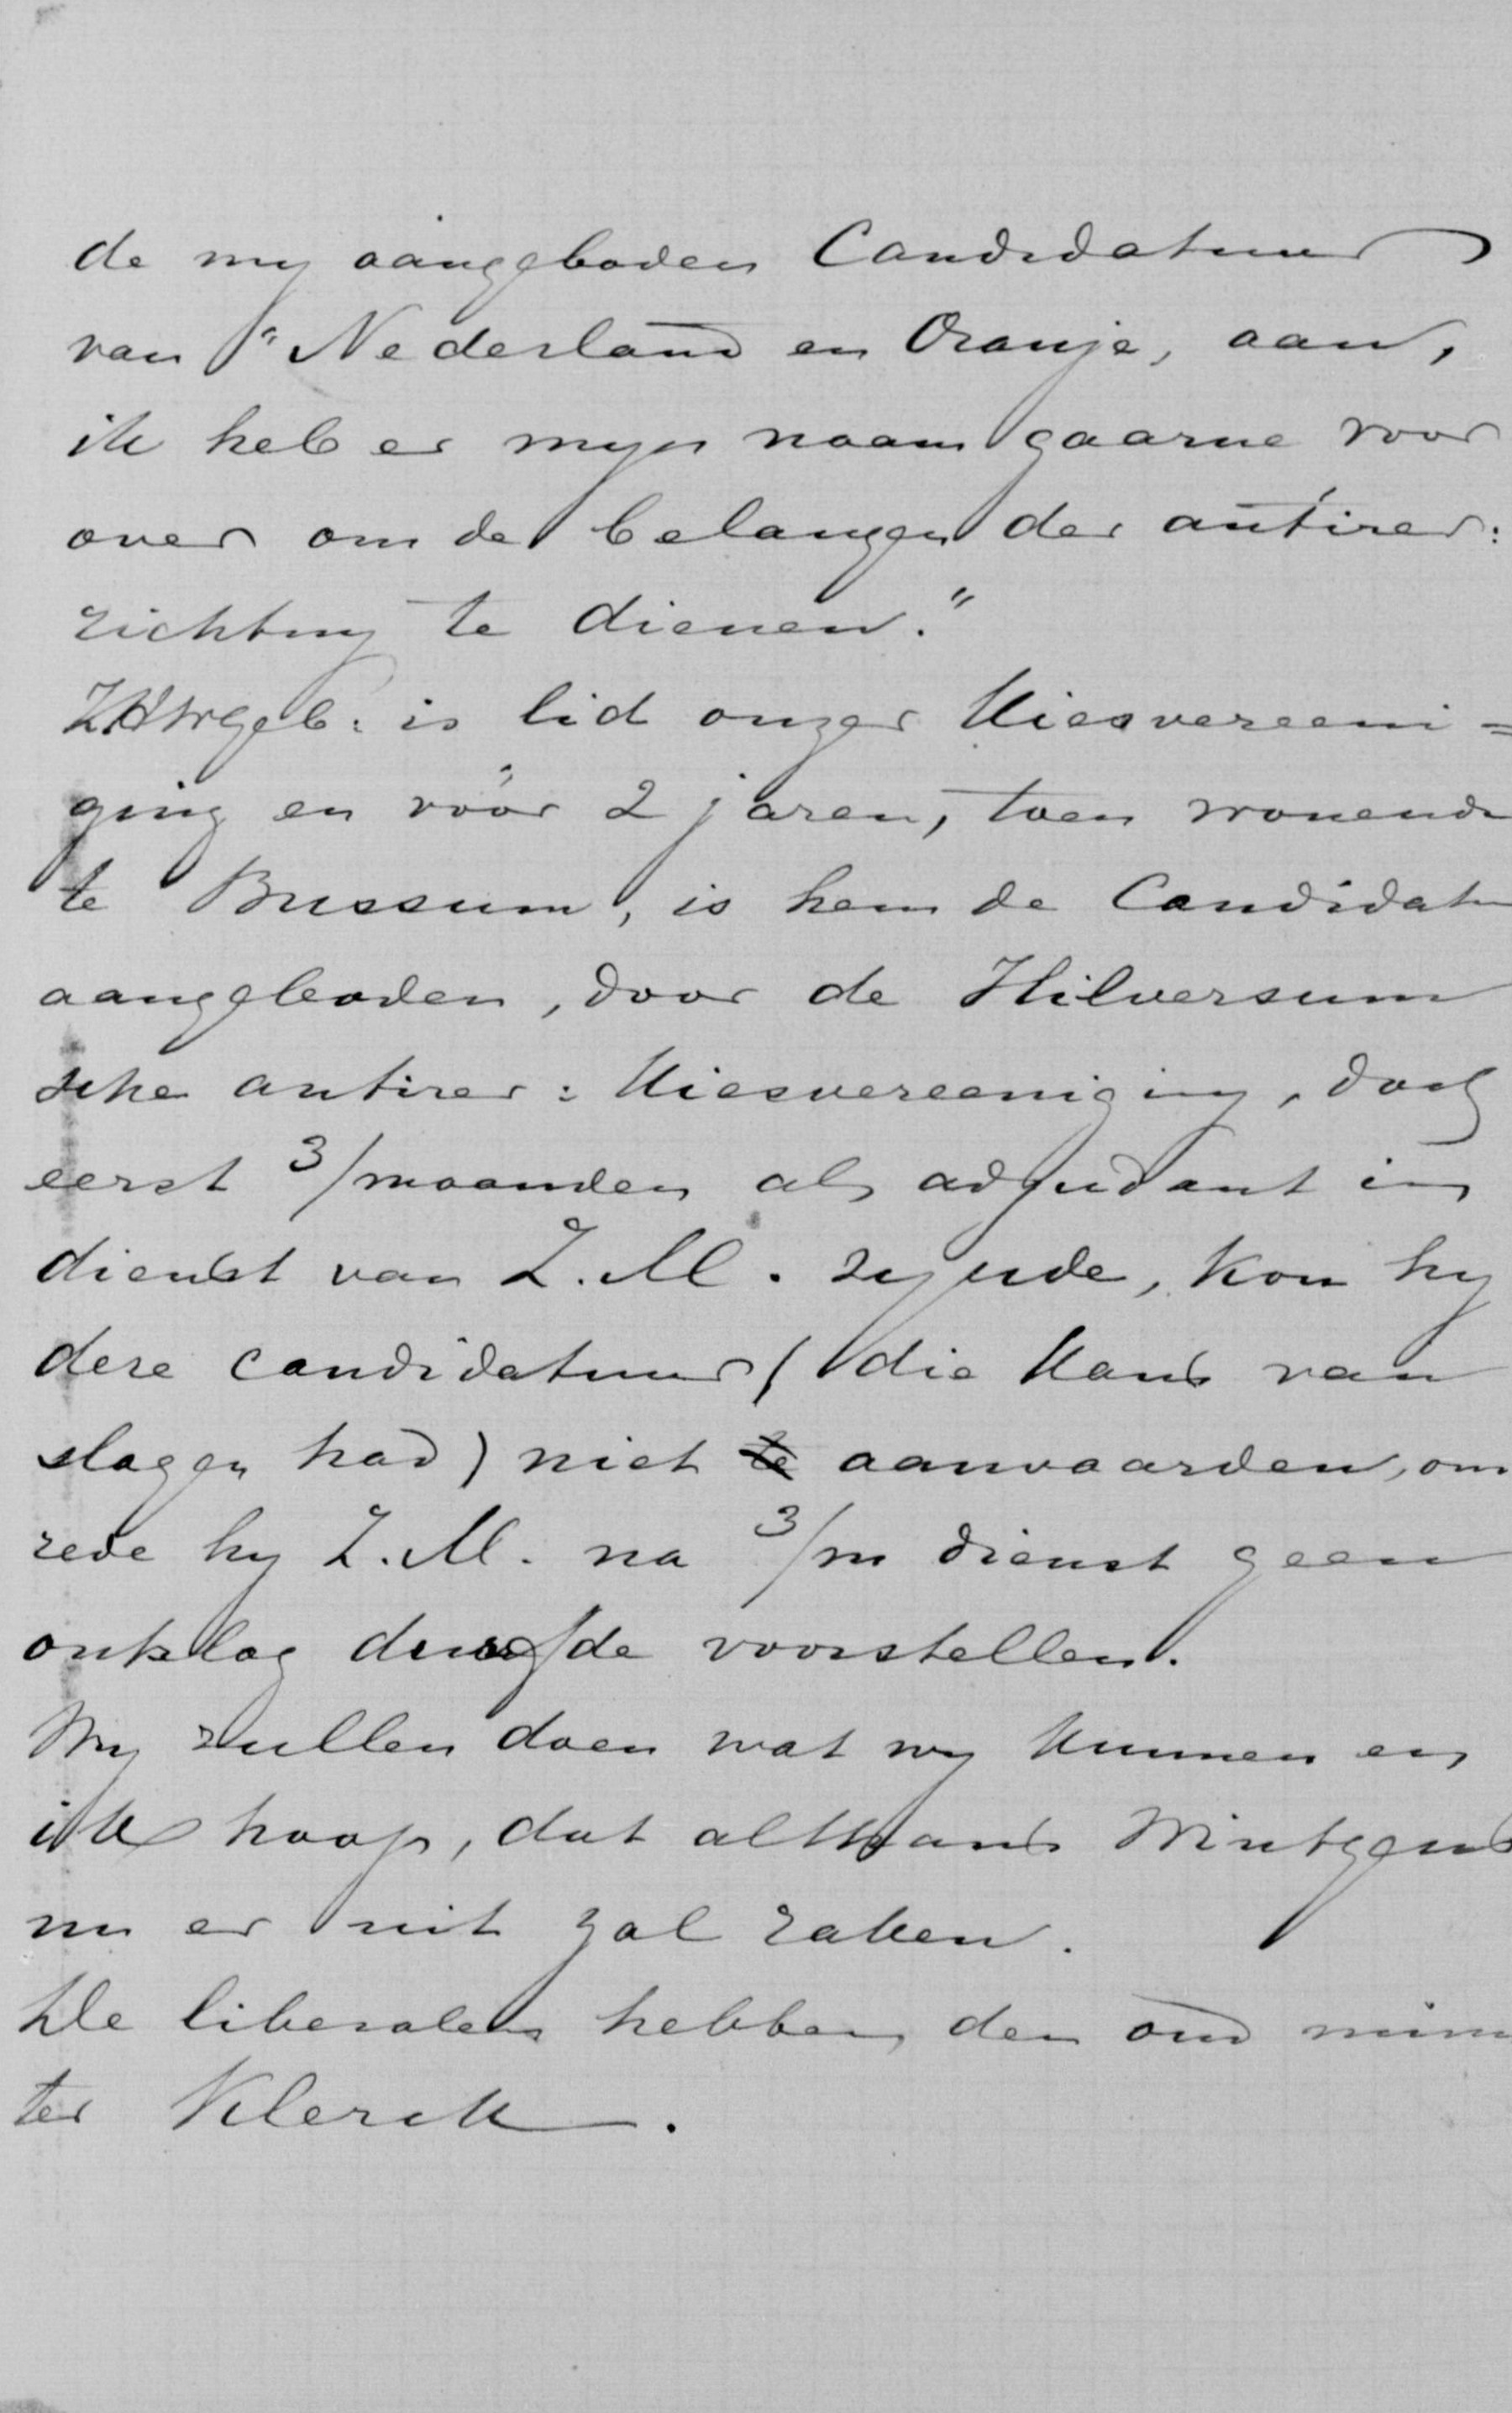 de my aangeboden Candidatuur
van "Nederland en Oranje, aan,
ik heb er myn naam gaarne voor
over om de belangen der antirev:
richting te dienen."
ZHWgeb: is lid onzer Kiesvereeni=
ging en vóór 2 jaren, toen wonende
te Bussum, is hem de Candidat
aangeboden, door de Hilversum
sche antirev: Kiesvereeniging, doch
eerst 3/maanden als adjudant in
dienst van Z.M. zynde, kon hy
deze candidatuur (die kans van
slagen had) niet te aanvaarden, om
rede hy Z.M. na 3/m dienst geen
ontslag durfde voorstellen.
Wy zullen doen wat wy kunnen en
ik hoop, dat althans Wintgens
nu er uit zal raken.
De liberalen hebben den oud minis
ter Klerck.